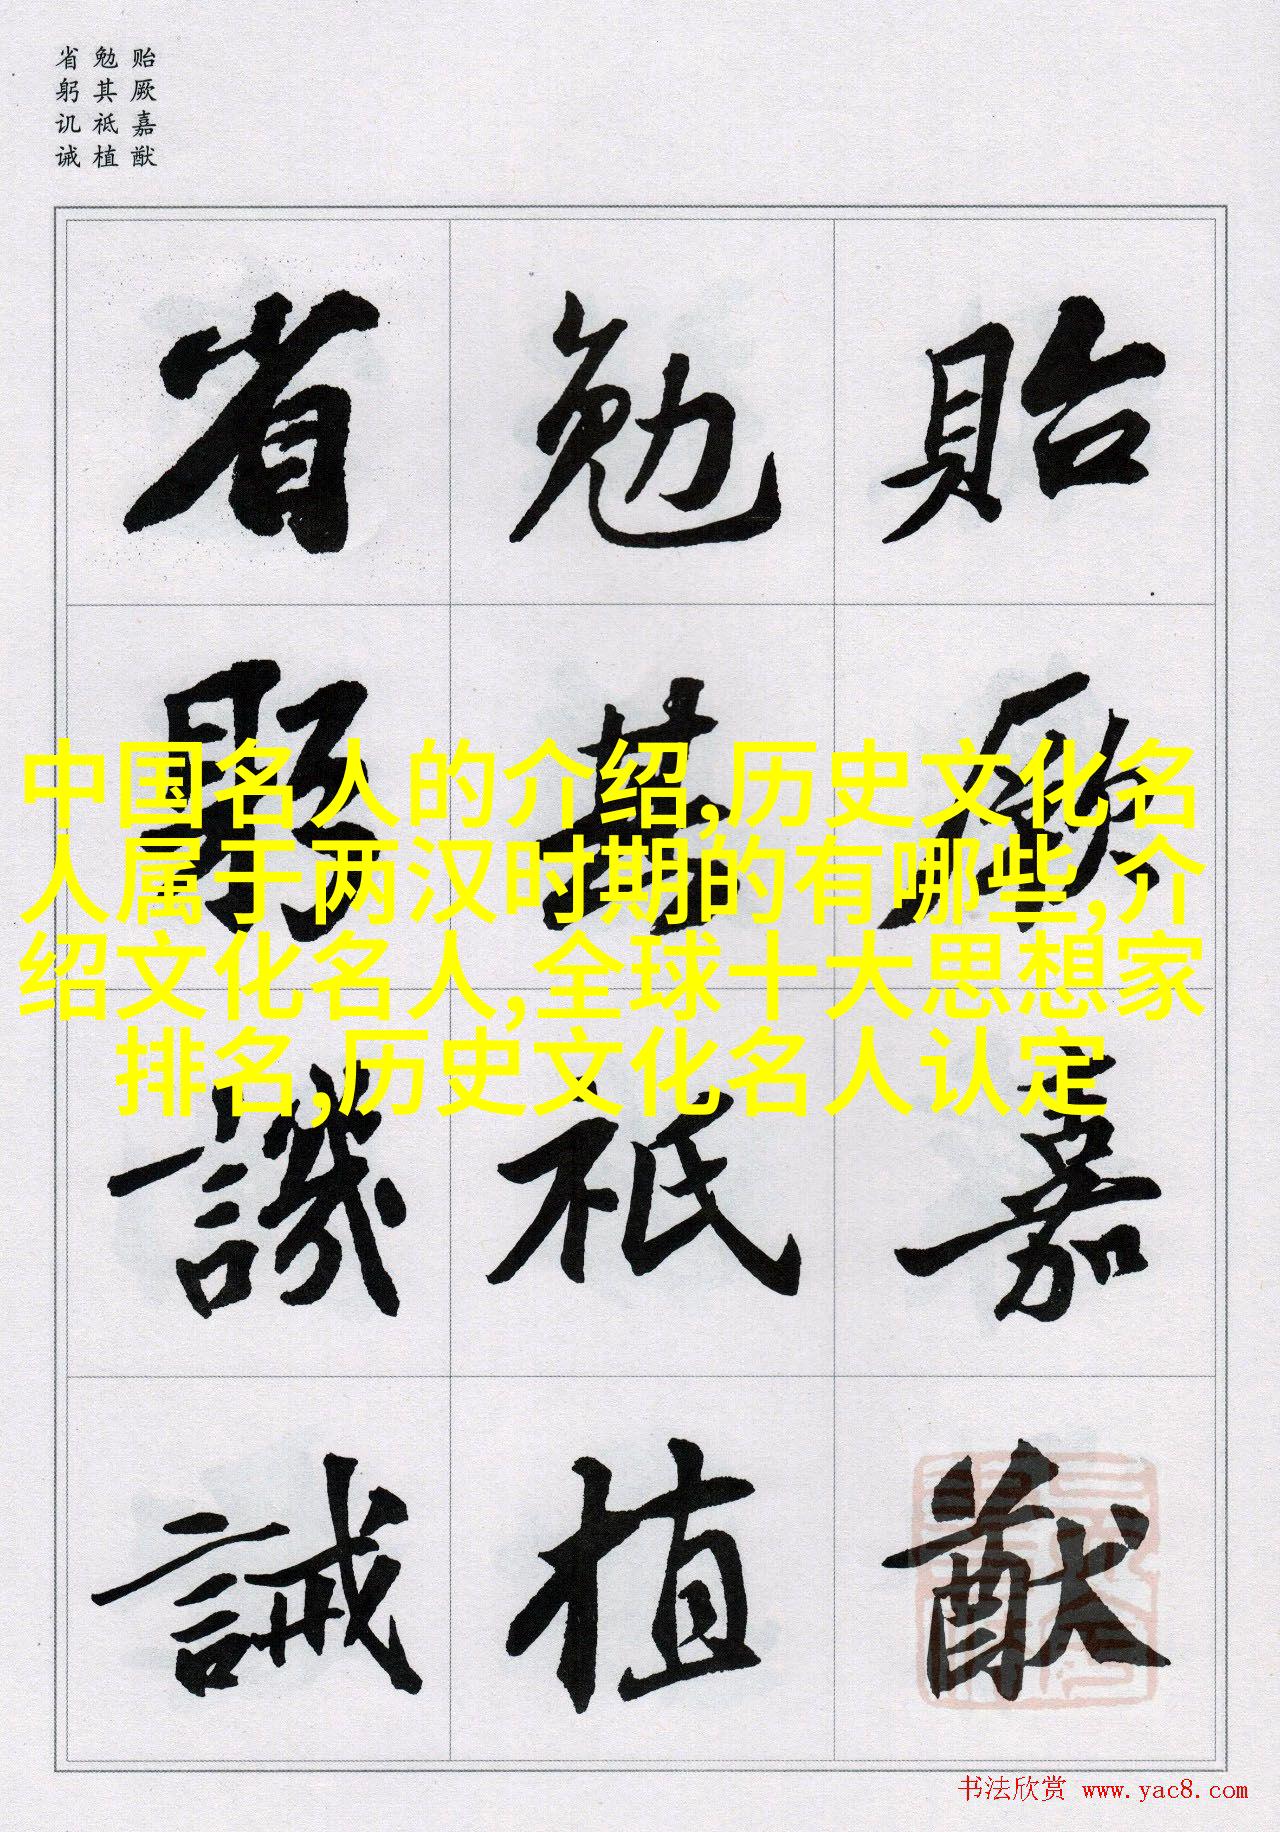 贻厥嘉猷
勉其祗植
省躬讥诫
貽厥嘉猷
勉其祗植
省躬譏誡
中国名人的介绍,历史文化名
人属于两汉时期的有哪些,介
绍文化名人,全球十大思想家
排名,历史文化名人认定
书法欣赏 www.yac8.com